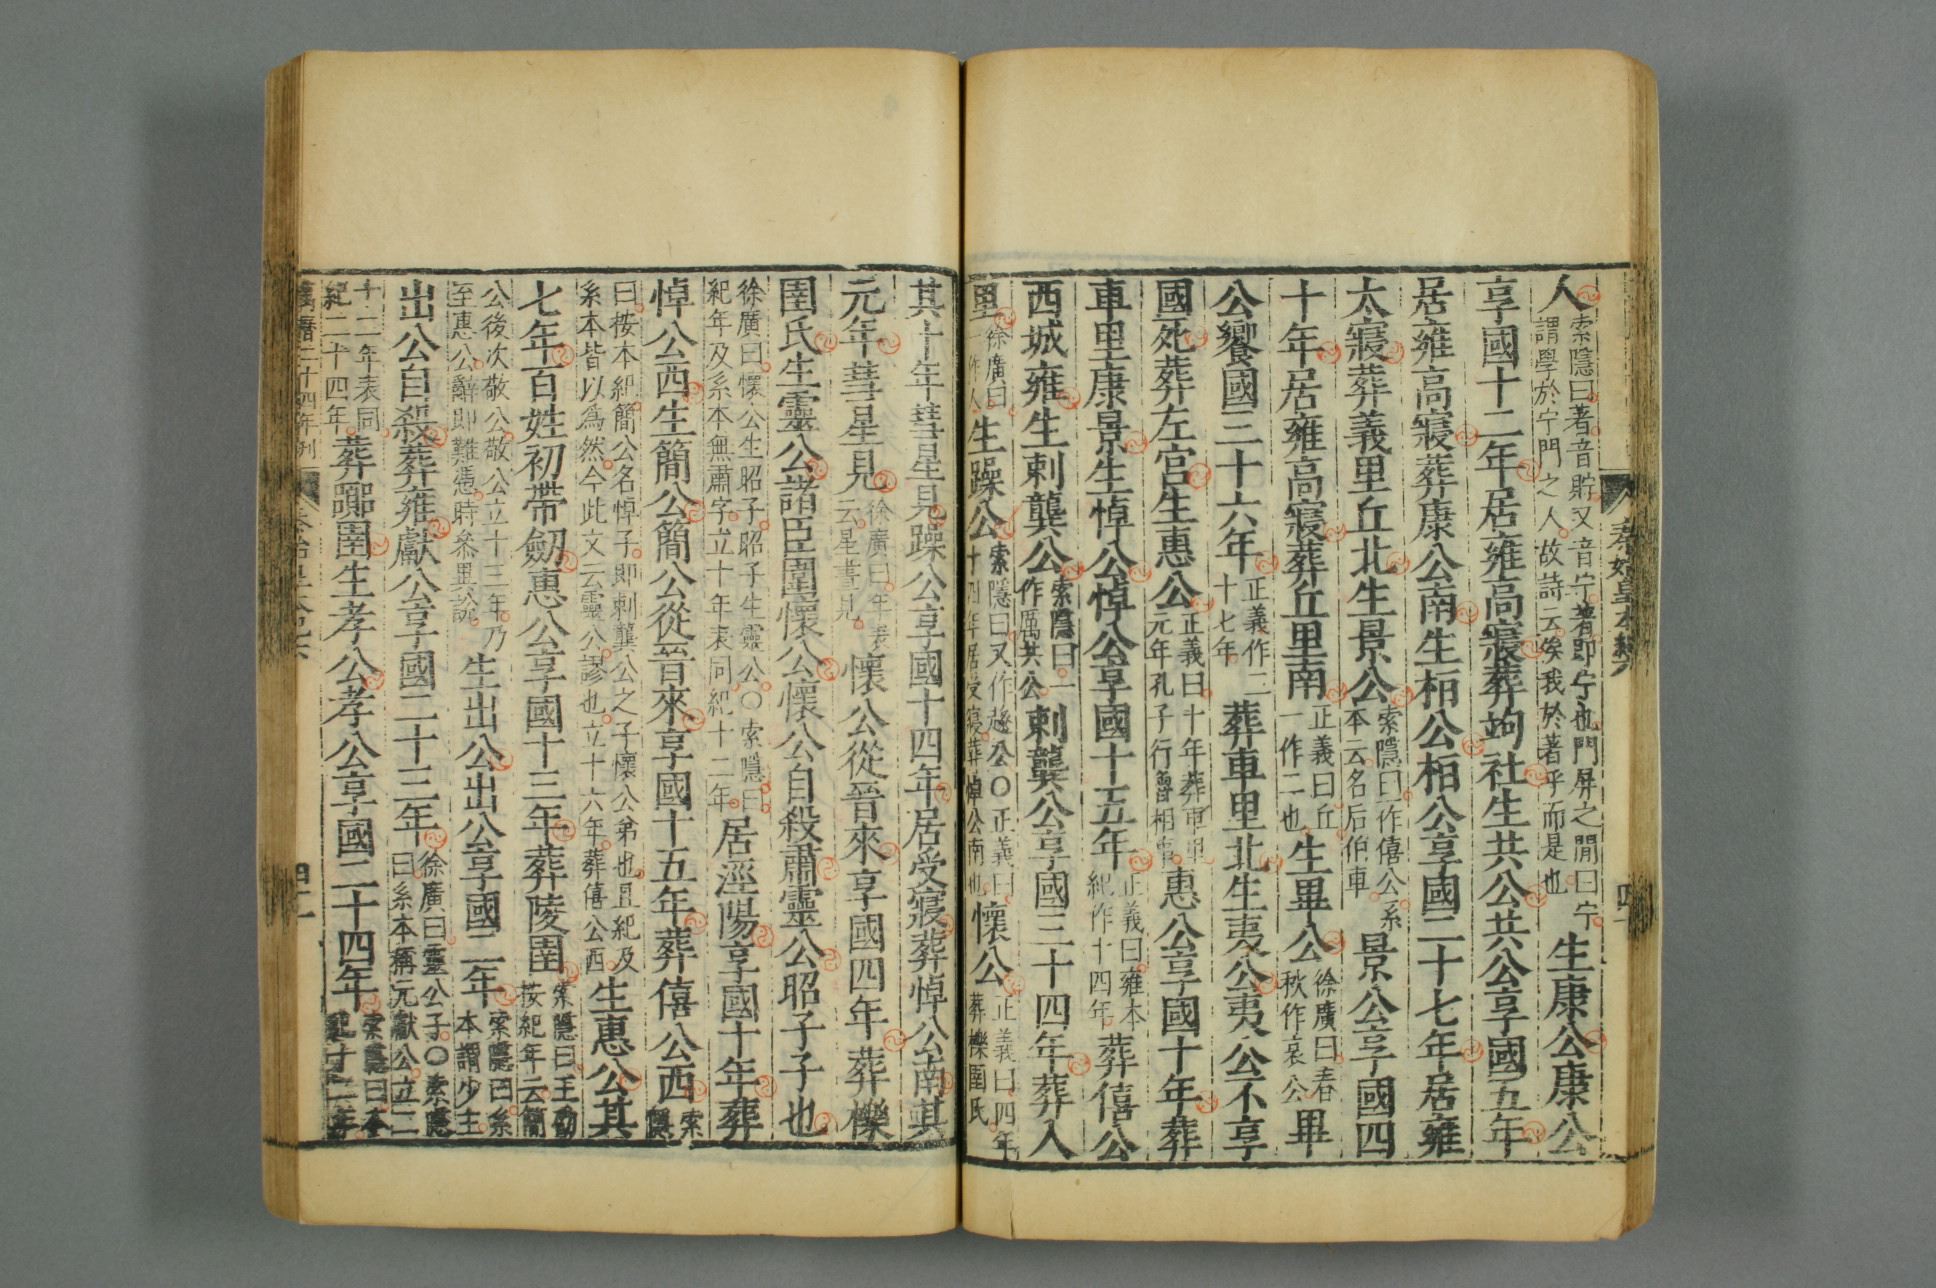 人索隱曰著音貯又音宁著即宁也門屏之間曰宁謂學於宁門之人故詩云俟我於著乎而是也生康公康公
享國十二年居雍高寢葬竘社生共公共公享國五年
居雍高寢葬康公南生桓公桓公享國二十七年居雍
太寢葬義里丘北生景公索隱曰一作僖公系本云名后伯車景公享國四
十年居雍高寢葬丘里南正義曰丘一作二也生畢公徐廣曰春秋作哀公畢
公饗國三十六年正義作三十七年葬車里北生夷公夷公不享
國死葬左宮生惠公正義曰十年葬車里元年孔子行魯相事惠公享國十年葬
車里康景生悼公悼公享國十五年正義曰雍本紀作十四年葬僖公
西城雍生剌龔公索隱曰一作厲共公剌龔公享國三十四年葬入
里徐廣曰一作人生躁公索隱曰又作趮公〇正義曰十四年居受寢葬悼公南也懷公正義曰四年葬櫟圉氏
其十年彗星見躁公享國十四年居受寢葬悼公南其
元年彗星見徐廣曰年表云星晝見懷公從晉來享國四年葬櫟
圉氏生靈公諸臣圍懷公懷公自殺肅靈公昭子子也
徐廣曰懷公生昭子昭子生靈公〇索隱曰紀年及系本無肅字立十年表同紀十二年居涇陽享國十年葬
悼公西生簡公簡公從晉來享國十五年葬僖公西索隱
曰按本紀簡公名悼子即剌龔公之子懷公弟也且紀及系本皆以爲然今此文云靈公謬也立十六年葬僖公西生惠公其
七年百姓初帶劒惠公享國十三年葬陵圉索隱曰王劭按紀年云簡
公後次敬公敬公立十三年乃至惠公辭即難憑時參異說生出公出公享國二年索隱曰系本謂少主
出公自殺葬雍獻公享國二十三年徐廣曰靈公子〇索隱曰系本稱元獻公立二
十二年表同紀二十四年葬囂圉生孝公孝公享國二十四年索隱曰本紀十二年
秦始皇本紀六
四十
萬曆二十四年刊
四十一